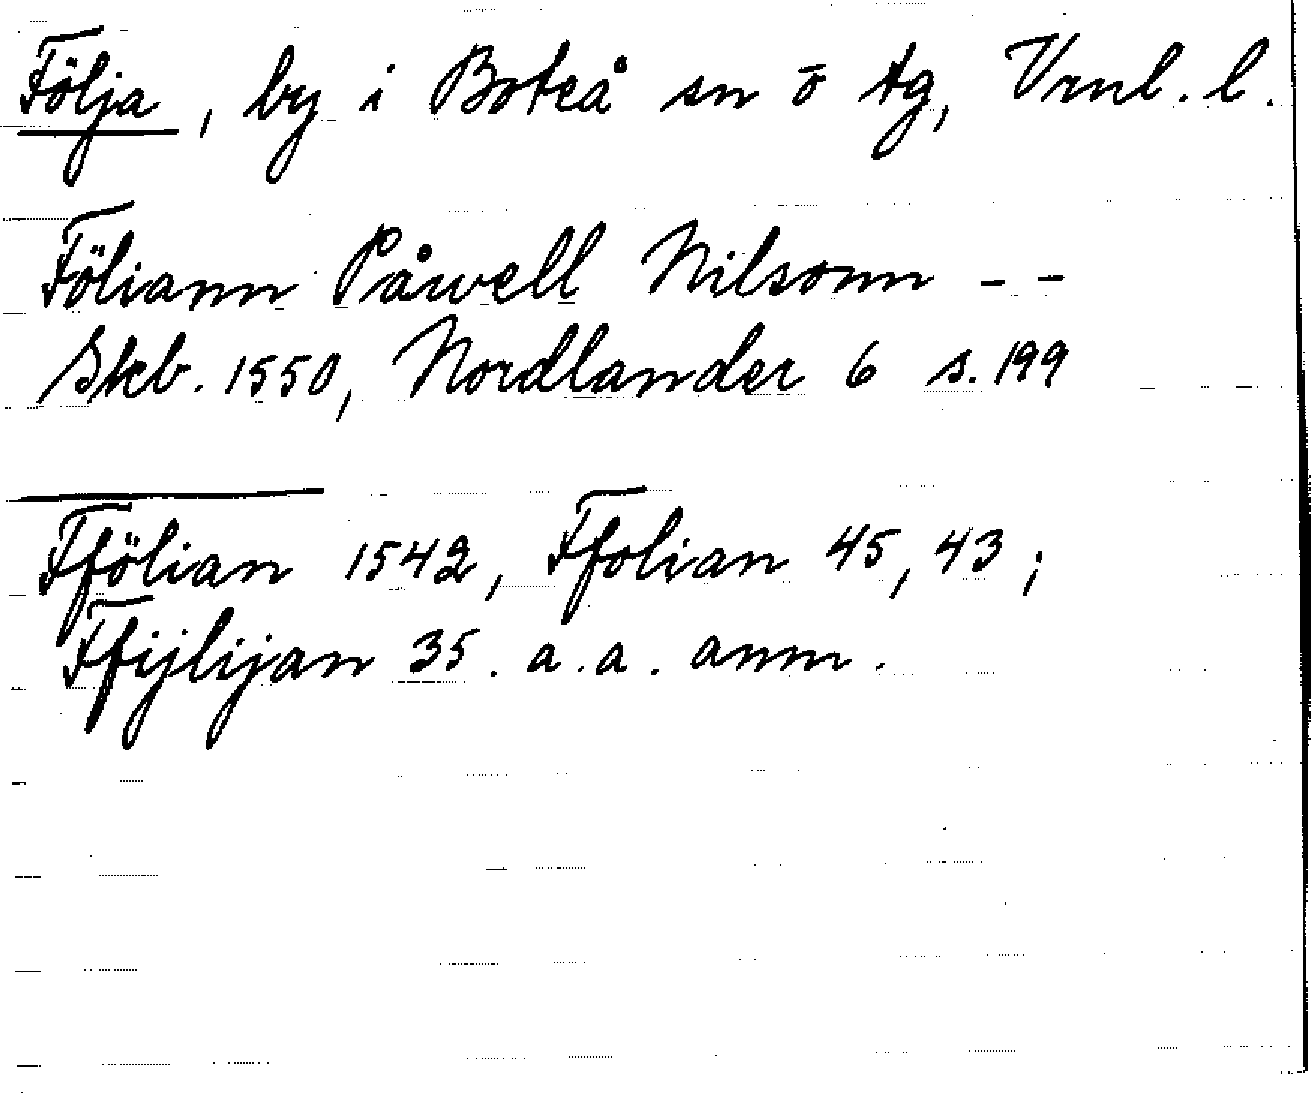 Följa, by i Boteå sn ö tg, Vrnl. l.
Föliann Påwell Nilsonn - -
Skb. 1550, Nordlander 6 s. 199
Ffölian 1542, Ffolian 45, 43;
Ffijlijan 35. a. a. anm.